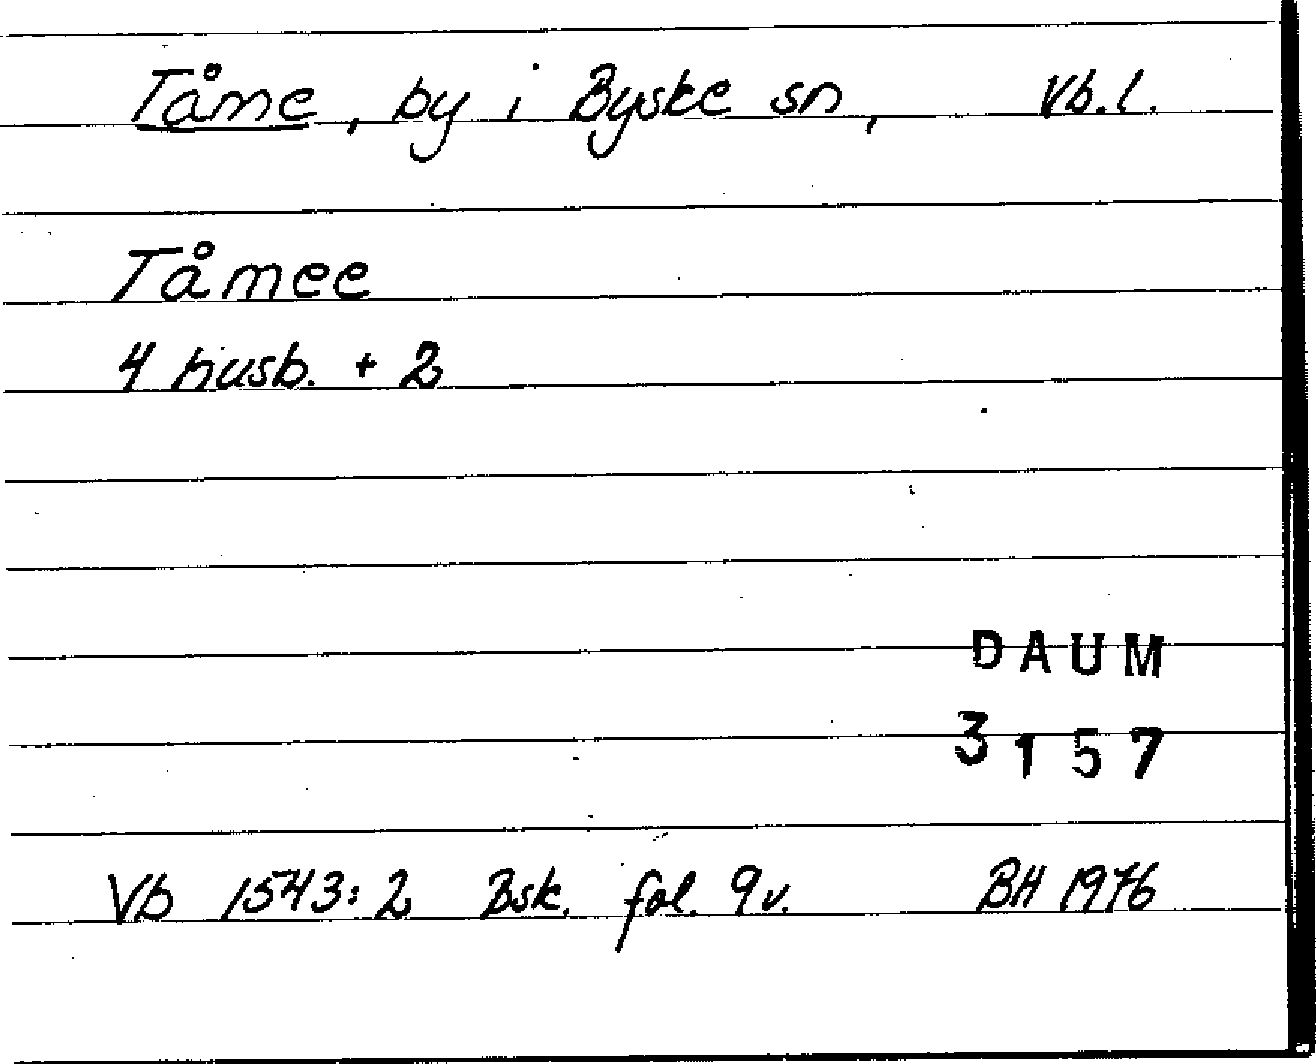 Tåme, by i Byske sn, Vb.l.
Tåmee
4 husb. + 2
DAUM
3157
Vb 1543:2 Bsk. fol. 9v. BH 1976